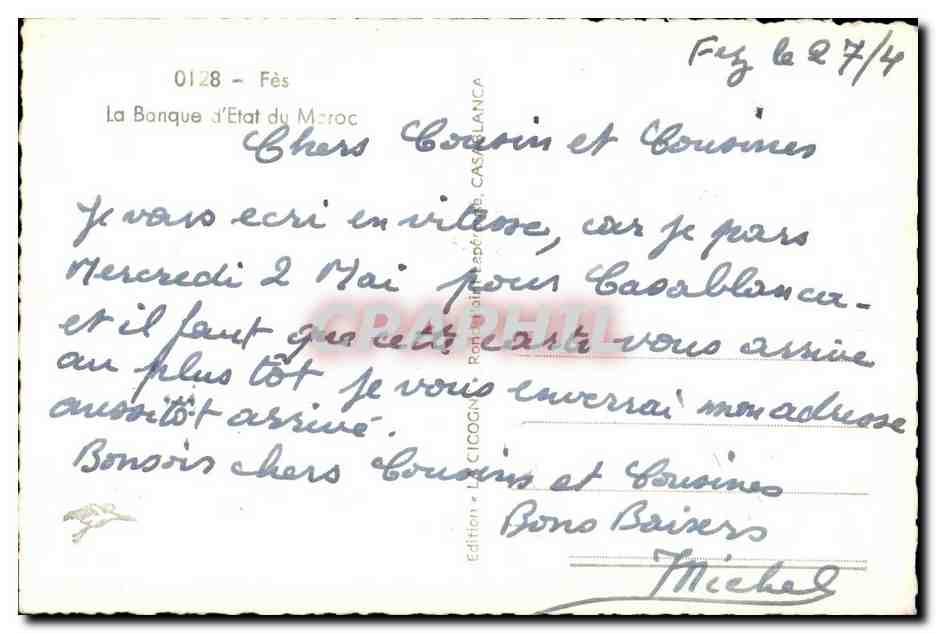 Fez le 27/4
0128 - Fès
La Banque d'Etat du Maroc
Chers Cousin et Cousines
Je vous ecri en vitesse, car je pars
Mercredi 2 Mai pour Casablanca-
et il faut que cette carte vous arrive
au plus tôt je vous enverrai mon adresse
aussitôt arrivé.
Bonsoir chers Cousins et Cousines
Bons Baisers
Michel
Edition « LA CICOGNE Rond Point Lapérouse, CASABLANCA
CRAPHIL